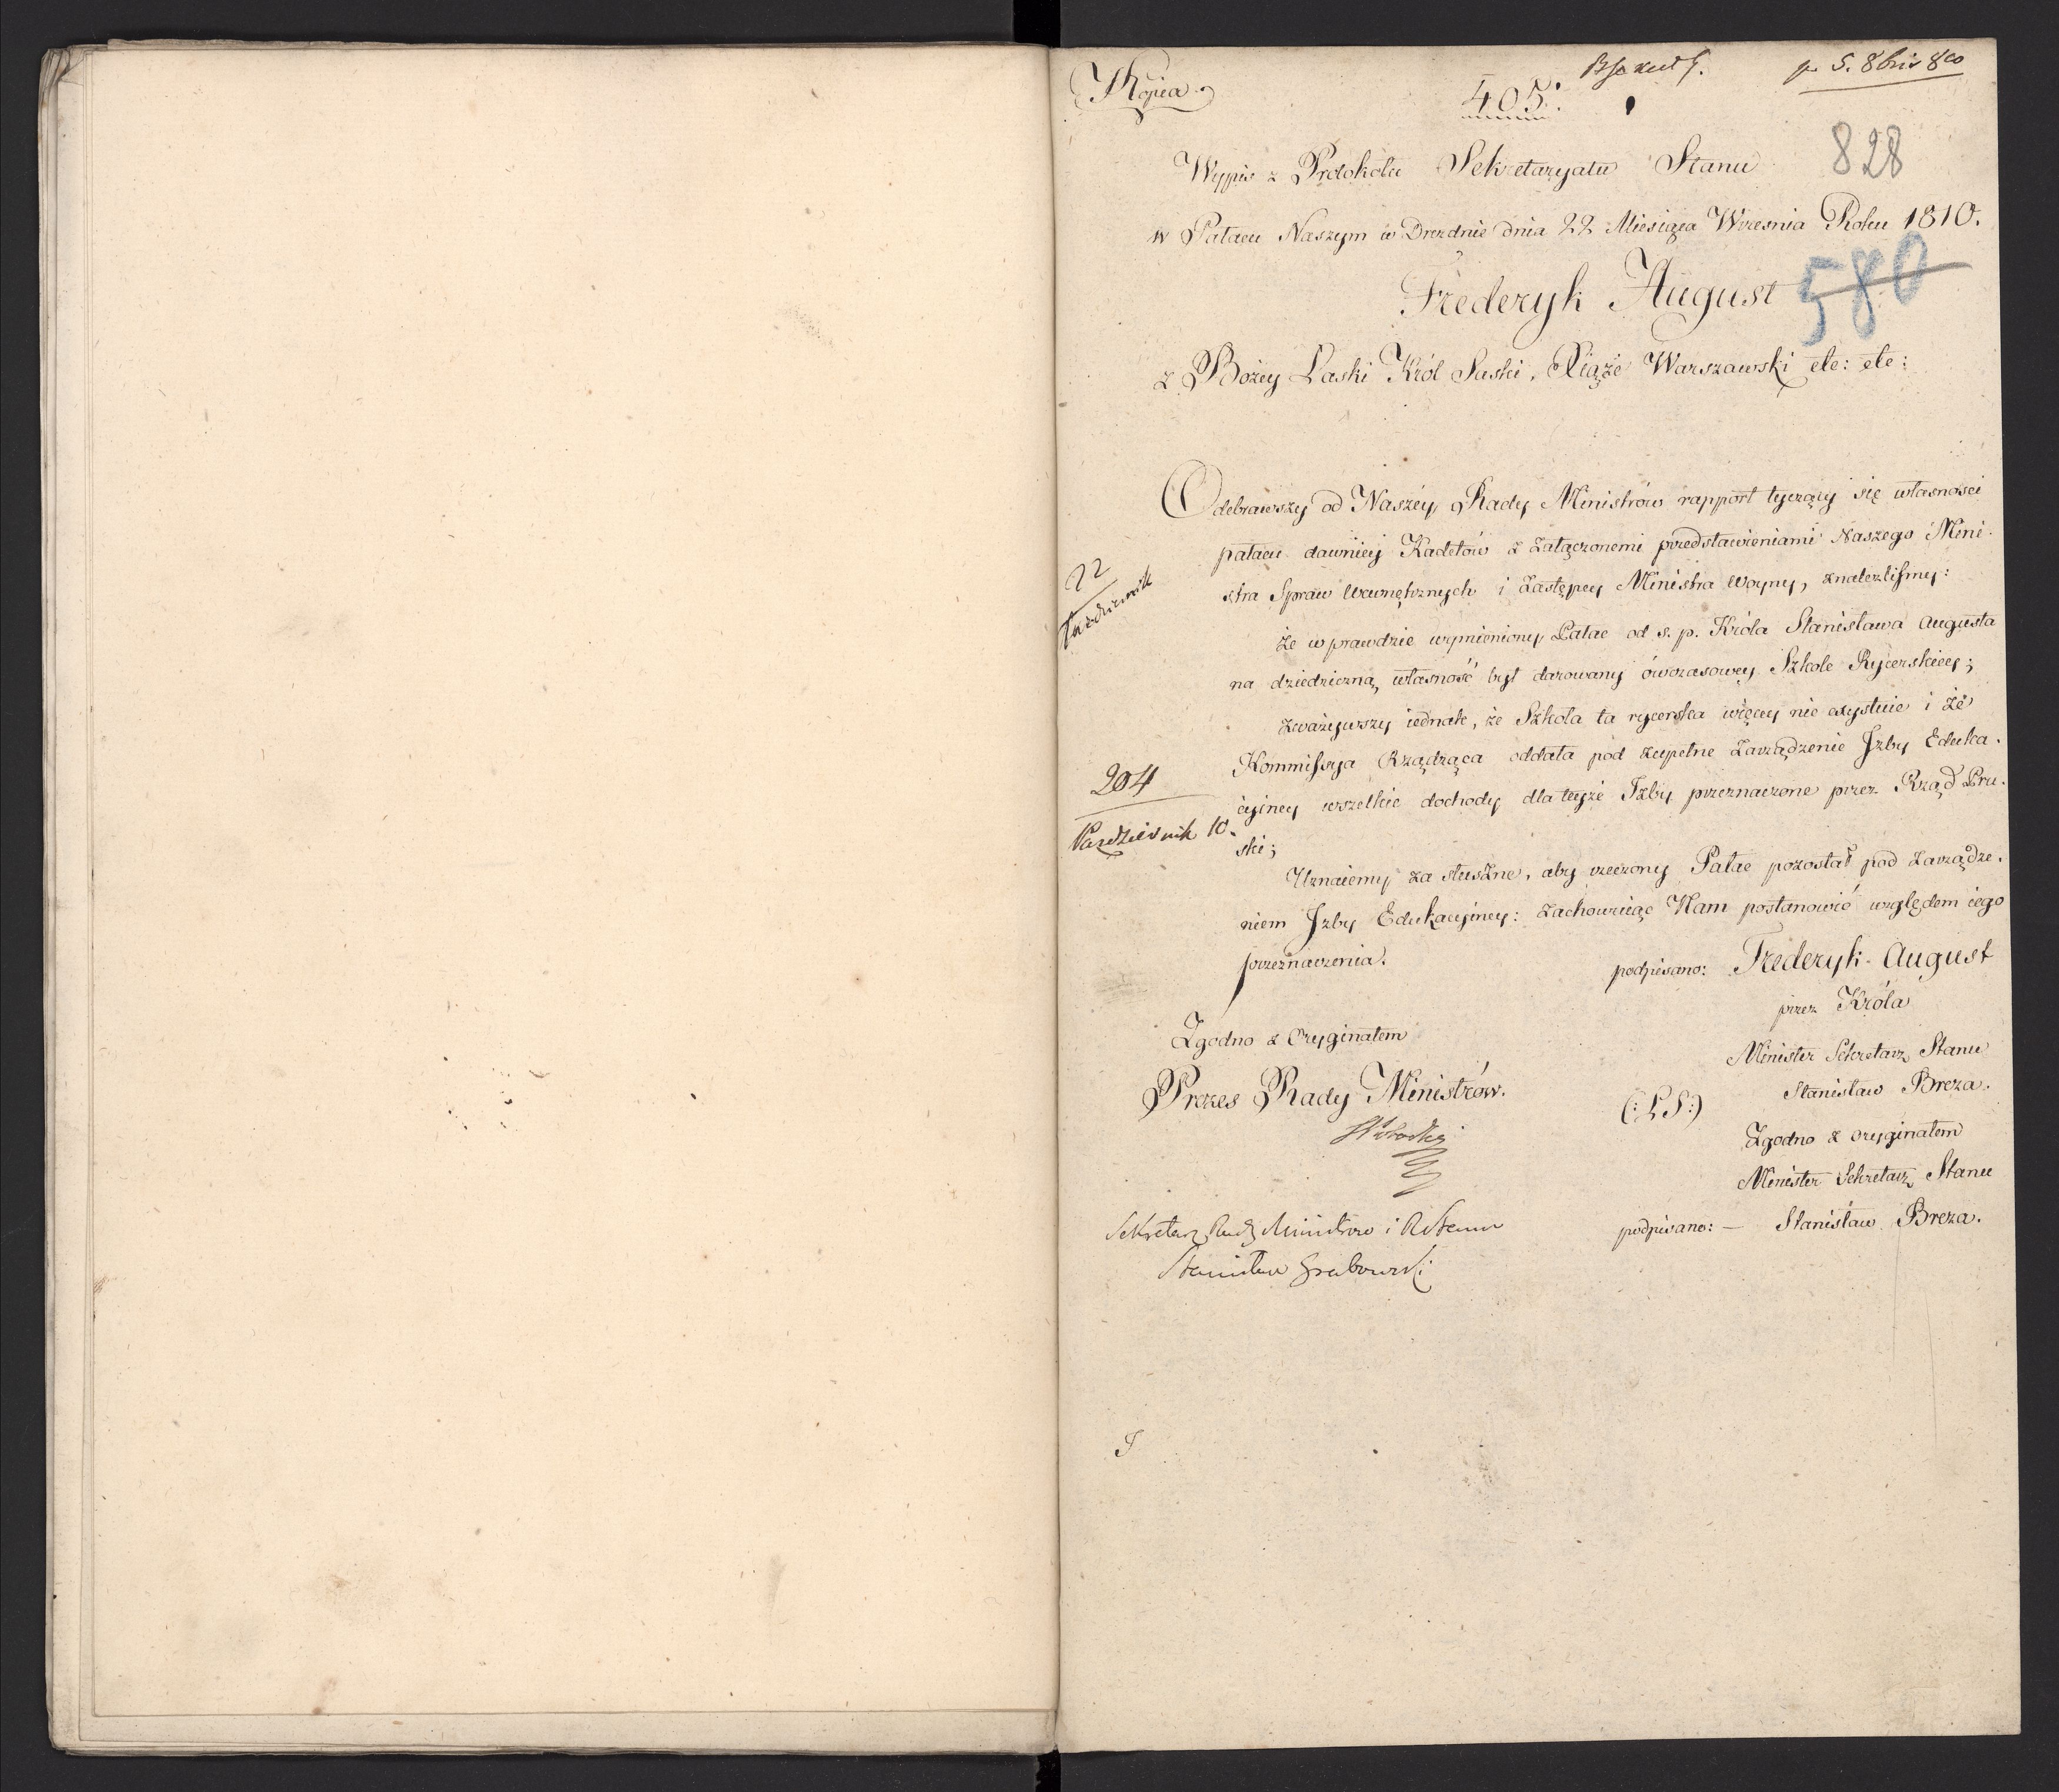 Kopia
405.
p. 5. 8bris 8co
828
Wypis z Protokołu Sekretaryatu Stanu
w Pałacu Naszym w Dreznie dnia 22 Miesiąca Wrzesnia Roku 1810.
580
Frederyk August
z Bożey Łaski Król Saski, Xiąże Warszawski etc: etc:
Odebrawszy od Naszéy Rady Ministrów rapport tyczący się własności
pałacu dawniey Kadetów z załączonemi przedstawieniami Naszego Mini-
stra Spraw Wewnętrznych i Zastępcy Ministra Woyny, znaleźlismy:
22
Pazdziernik
że wprawdzie wymieniony Pałac od s. p. Króla Stanisława Augusta
na dziedziczną własność był darowany ówczasowey Szkole Rycerskiey;
zważywszy iednak, że Szkoła ta rycerska więcey nie exystuie i że
Kommissya Rządząca oddała pod zupełne Zarządzenie Izby Eduka-
204
cyiney wszelkie dochody dla teyże Izby przeznaczone przez Rząd Pru-
Pazdziernik 10.
ski;
Uznaiemy za słuszne, aby rzeczony Pałac pozostał pod Zarządze-
niem Izby Edukacyiney: zachowuiąc Nam postanowić względem iego
przeznaczenia.
podpisano: Frederyk August
przez Króla
Zgodno z Oryginałem
Minister Sekretarz Stanu
Prezes Rady Ministrów.
Stanisław Breza.
(:LS:)
Zgodno z oryginałem
Minister Sekretarz Stanu
Sekretarz Rady Ministrów i R Stanu
podpisano: — Stanisław Breza.
Stanisław Grabowski